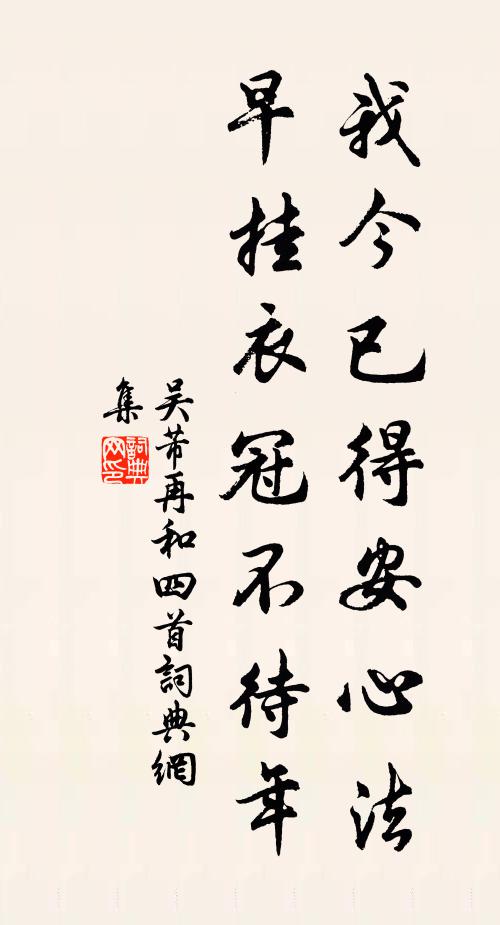 我今已得安心法
早挂衣冠不待年
吴芾再和四首詞典網
集
詞典网印